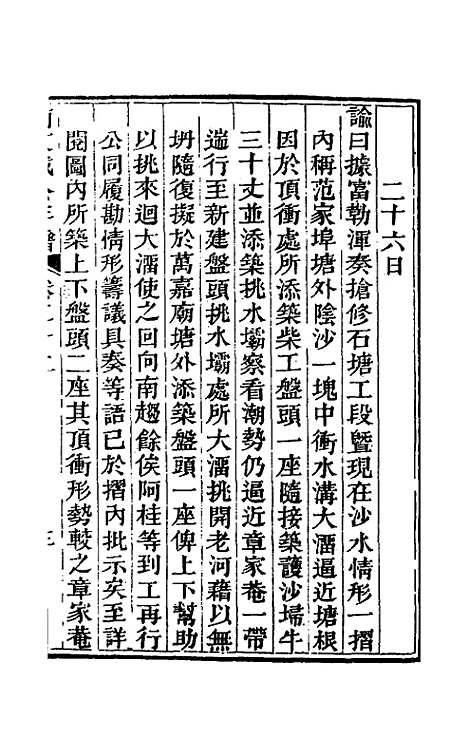 二十六日
諭曰據富勒渾奏搶修石塘工段暨現在沙水情形一摺
內稱范家埠塘外陰沙一塊中衝水溝大溜逼近塘根
因於頂衝處所添築柴工盤頭一座隨接築護沙埽牛
三十丈並添築挑水壩察看潮勢仍逼近章家菴一帶
遄行至新建盤頭挑水壩處所大溜挑開老河藉以無
坍隨復擬於萬嘉廟塘外添築盤頭一座俾上下幫助
以挑來迴大溜使之回向南趨餘俟阿桂等到工再行
公同履勘情形籌議具奏等語已於摺內批示矣至詳
閱圖內所築上下盤頭二座其頂衝形勢較之章家菴